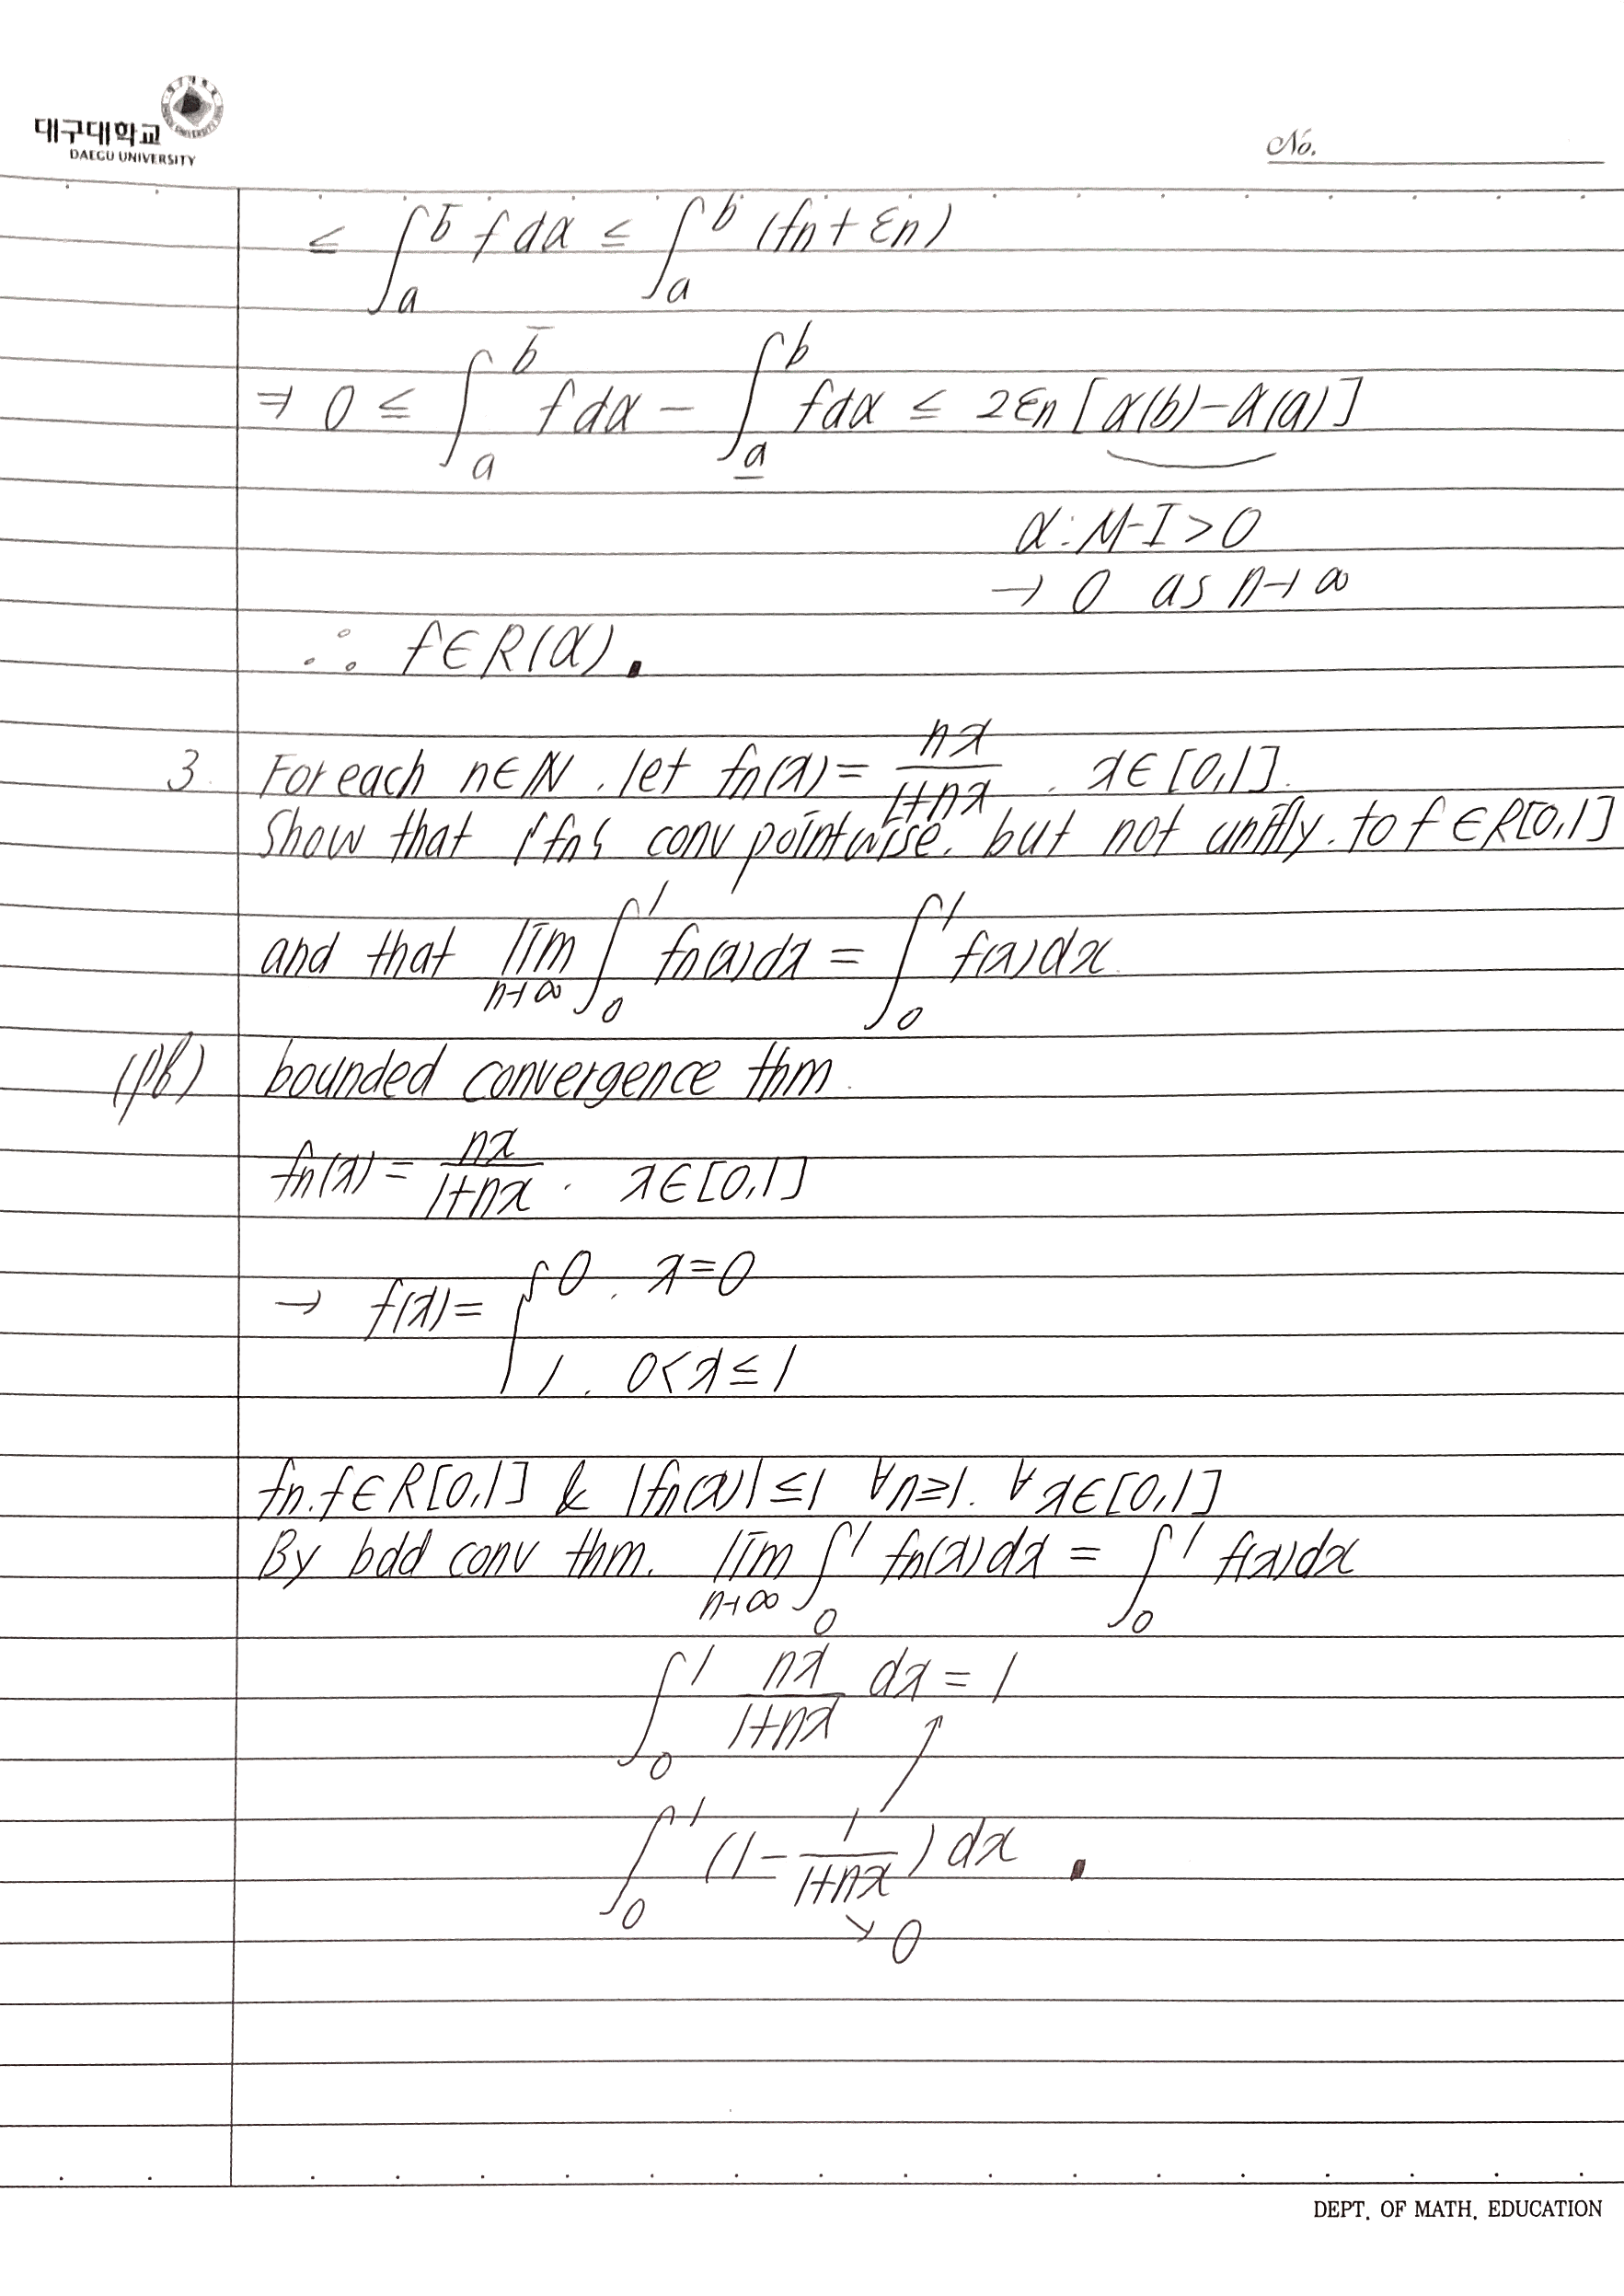 대구대학교
DAEGU UNIVERSITY
No.
≤ ∫_a^b̅ f dα ≤ ∫_a^b (fn + εn)
⇒ 0 ≤ ∫_a^b̅ f dα − ∫_a̲^b f dα ≤ 2εn [α(b) − α(a)]
α : M-I > 0
→ 0 as n→∞
∴ f ∈ R(α).
3. For each n∈ℕ, let fn(x) = nx/(1+nx), x∈[0,1].
Show that {fn} conv pointwise, but not unifly, to f ∈ R[0,1]
and that lim_{n→∞} ∫_0^1 fn(x)dx = ∫_0^1 f(x)dx.
(pf) bounded convergence thm.
fn(x) = nx/(1+nx), x∈[0,1]
→ f(x) = { 0, x=0
1, 0<x≤1
fn, f ∈ R[0,1] & |fn(x)| ≤ 1 ∀n≥1, ∀x∈[0,1]
By bdd conv thm, lim_{n→∞} ∫_0^1 fn(x)dx = ∫_0^1 f(x)dx
∫_0^1 nx/(1+nx) dx = 1
∫_0^1 (1 − 1/(1+nx)) dx .
↘ 0
DEPT. OF MATH. EDUCATION